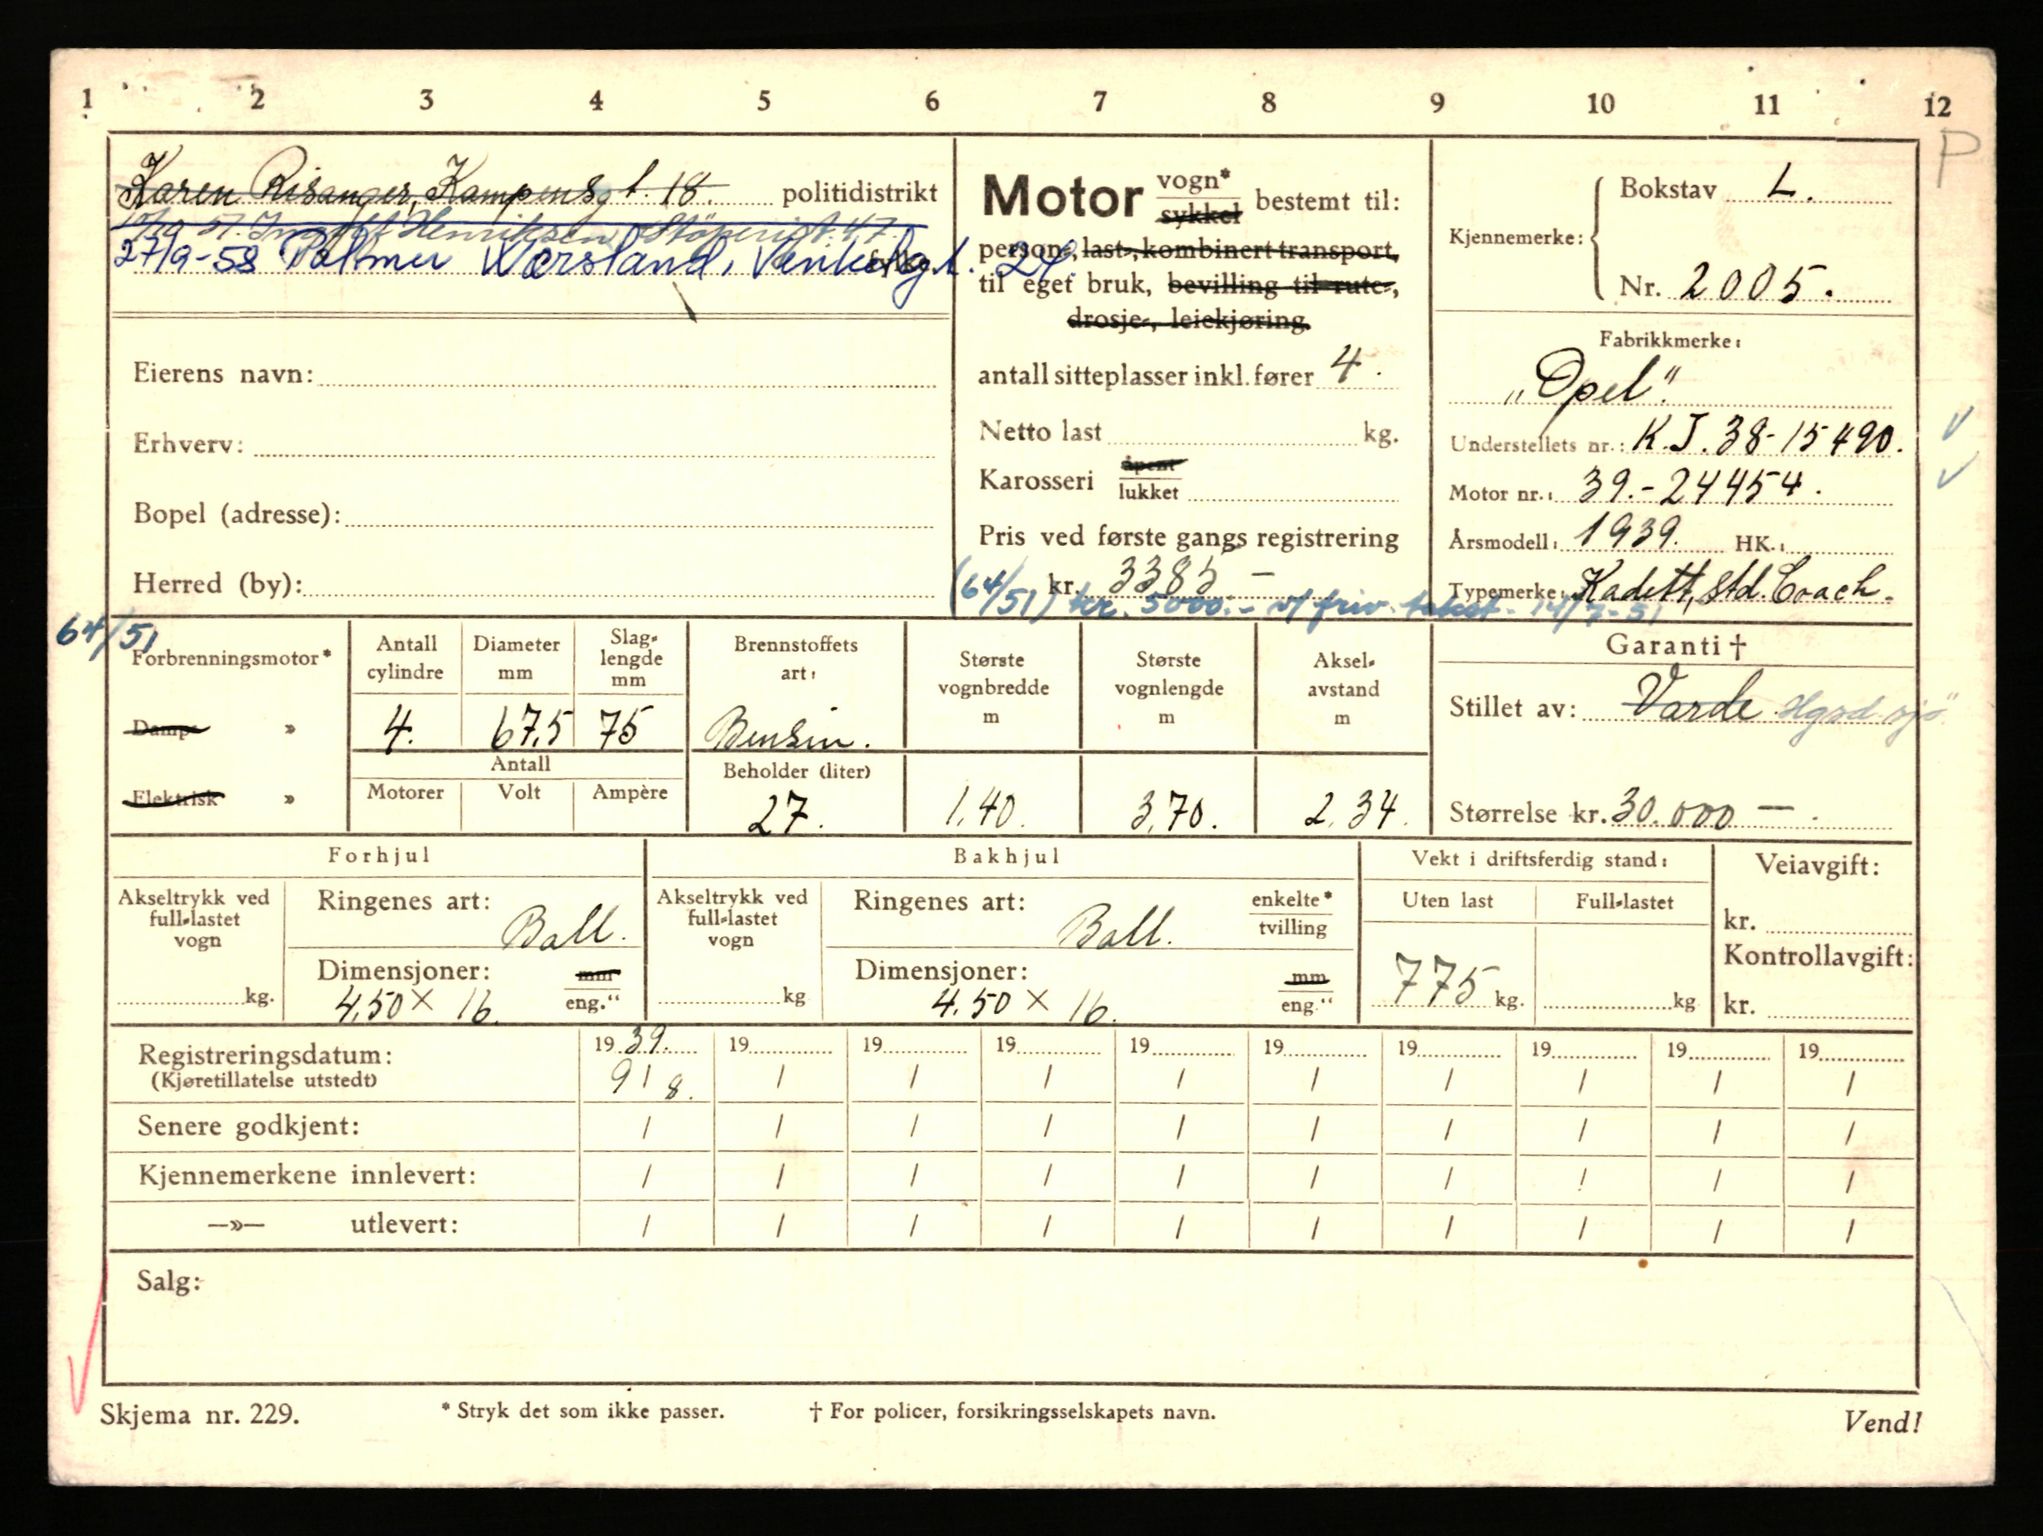 1 2 3 4 5 6 7 8 9 10 11 12
P
Karen Risanger, Kampensg t. 18. politidistrikt
Henriksen
27/9-58 Palmer Wersland, 24.
Eierens navn:
Erhverv:
Bopel (adresse):
Herred (by):
Motor vogn* sykkel bestemt til:
person-, last-, kombinert transport,
til eget bruk, bevilling til rute-,
drosje-, leiekjøring.
antall sitteplasser inkl. fører 4.
Netto last kg.
Karosseri åpent lukket
Pris ved første gangs registrering
kr. 3385 —
(64/51) kr. 5000.- v/ friv. takst - 14/7-51
Kjennemerke: Bokstav L.
Nr. 2005.
Fabrikkmerke:
„Opel".
Understellets nr.: K.J. 38-15490.
Motor nr.: 39.-24454.
Årsmodell: 1939. HK.:
Typemerke: Kadett, Std. Coach.
64/51
Forbrenningsmotor*
Damp- »
Elektrisk »
Antall cylindre
4.
Diameter mm
67,5
Slaglengde mm
75
Antall
Motorer Volt Ampère
Brennstoffets art:
Bensin.
Beholder (liter)
27.
Største vognbredde m
1,40.
Største vognlengde m
3,70.
Akselavstand m
2,34.
Garanti †
Stillet av: Varde
Størrelse kr. 30.000 — .
Forhjul
Akseltrykk ved full-lastet vogn
kg.
Ringenes art:
Ball.
Dimensjoner: mm eng."
4,50 x 16.
Bakhjul
Akseltrykk ved full-lastet vogn
kg
Ringenes art: enkelte* tvilling
Ball.
Dimensjoner: mm eng."
4,50 x 16.
Vekt i driftsferdig stand:
Uten last Full-lastet
775 kg. kg
Veiavgift:
kr.
Kontrollavgift:
kr.
Registreringsdatum: 19 39. 19 19 19 19 19 19 19 19 19
(Kjøretillatelse utstedt) 9 / 8. / / / / / / / / /
Senere godkjent: / / / / / / / / / /
Kjennemerkene innlevert: / / / / / / / / / /
—»— utlevert: / / / / / / / / / /
Salg:
Skjema nr. 229. * Stryk det som ikke passer. † For policer, forsikringsselskapets navn. Vend!